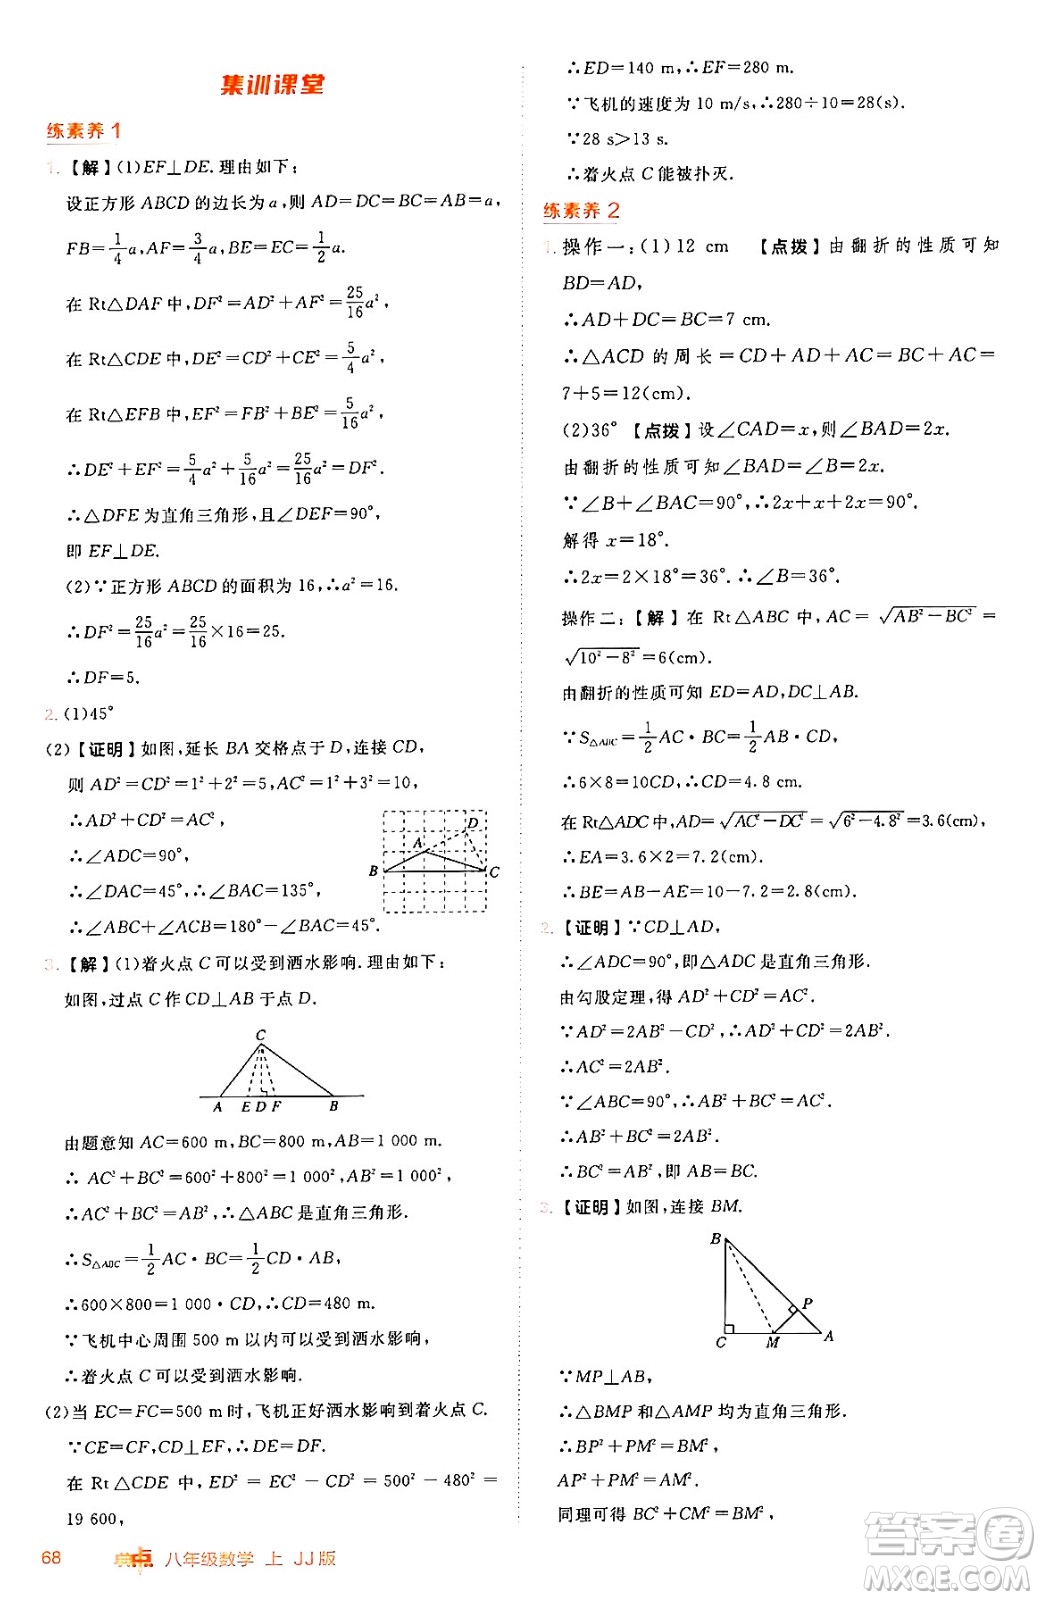 集训课堂
练素养 1
1. 【解】(1)EF⊥DE. 理由如下：
设正方形 ABCD 的边长为 a, 则 AD=DC=BC=AB=a,
FB=1/4 a, AF=3/4 a, BE=EC=1/2 a.
在 Rt△DAF 中, DF²=AD²+AF²=25/16 a²,
在 Rt△CDE 中, DE²=CD²+CE²=5/4 a²,
在 Rt△EFB 中, EF²=FB²+BE²=5/16 a²,
∴DE²+EF²=5/4 a²+5/16 a²=25/16 a²=DF².
∴△DFE 为直角三角形, 且∠DEF=90°,
即 EF⊥DE.
(2)∵正方形 ABCD 的面积为 16, ∴a²=16.
∴DF²=25/16 a²=25/16×16=25.
∴DF=5.
2. (1)45°
(2)【证明】如图, 延长 BA 交格点于 D, 连接 CD,
则 AD²=CD²=1²+2²=5, AC²=1²+3²=10,
∴AD²+CD²=AC²,
∴∠ADC=90°,
∴∠DAC=45°, ∴∠BAC=135°,
∴∠ABC+∠ACB=180°-∠BAC=45°.
A D B C
3. 【解】(1)着火点 C 可以受到洒水影响. 理由如下：
如图, 过点 C 作 CD⊥AB 于点 D.
C
A E D F B
由题意知 AC=600 m, BC=800 m, AB=1 000 m.
∴ AC²+BC²=600²+800²=1 000², AB²=1 000²,
∴AC²+BC²=AB², ∴△ABC 是直角三角形.
∴S△ABC=1/2 AC·BC=1/2 CD·AB,
∴600×800=1 000·CD, ∴CD=480 m.
∵飞机中心周围 500 m 以内可以受到洒水影响,
∴着火点 C 可以受到洒水影响.
(2)当 EC=FC=500 m 时, 飞机正好洒水影响到着火点 C.
∵CE=CF, CD⊥EF, ∴DE=DF.
在 Rt△CDE 中, ED²=EC²-CD²=500²-480²=
19 600,
∴ED=140 m, ∴EF=280 m.
∵飞机的速度为 10 m/s, ∴280÷10=28(s).
∵28 s>13 s.
∴着火点 C 能被扑灭.
练素养 2
1. 操作一：(1)12 cm 【点拨】由翻折的性质可知
BD=AD,
∴AD+DC=BC=7 cm.
∴△ACD 的周长=CD+AD+AC=BC+AC=
7+5=12(cm).
(2)36° 【点拨】设∠CAD=x, 则∠BAD=2x.
由翻折的性质可知∠BAD=∠B=2x.
∵∠B+∠BAC=90°, ∴2x+x+2x=90°.
解得 x=18°.
∴2x=2×18°=36°. ∴∠B=36°.
操作二：【解】在 Rt△ABC 中, AC=√(AB²-BC²)=
√(10²-8²)=6(cm).
由翻折的性质可知 ED=AD, DC⊥AB.
∵S△ABC=1/2 AC·BC=1/2 AB·CD,
∴6×8=10CD, ∴CD=4.8 cm.
在 Rt△ADC 中, AD=√(AC²-DC²)=√(6²-4.8²)=3.6(cm),
∴EA=3.6×2=7.2(cm).
∴BE=AB-AE=10-7.2=2.8(cm).
2. 【证明】∵CD⊥AD,
∴∠ADC=90°, 即△ADC 是直角三角形.
由勾股定理, 得 AD²+CD²=AC².
∵AD²=2AB²-CD², ∴AD²+CD²=2AB².
∴AC²=2AB².
∵∠ABC=90°, ∴AB²+BC²=AC².
∴AB²+BC²=2AB².
∴BC²=AB², 即 AB=BC.
3. 【证明】如图, 连接 BM.
B P C M A
∵MP⊥AB,
∴△BMP 和△AMP 均为直角三角形.
∴BP²+MP²=BM²,
AP²+MP²=AM².
同理可得 BC²+CM²=BM²,
68 典中点 八年级数学 上 JJ版
答案圈
MXQE.COM